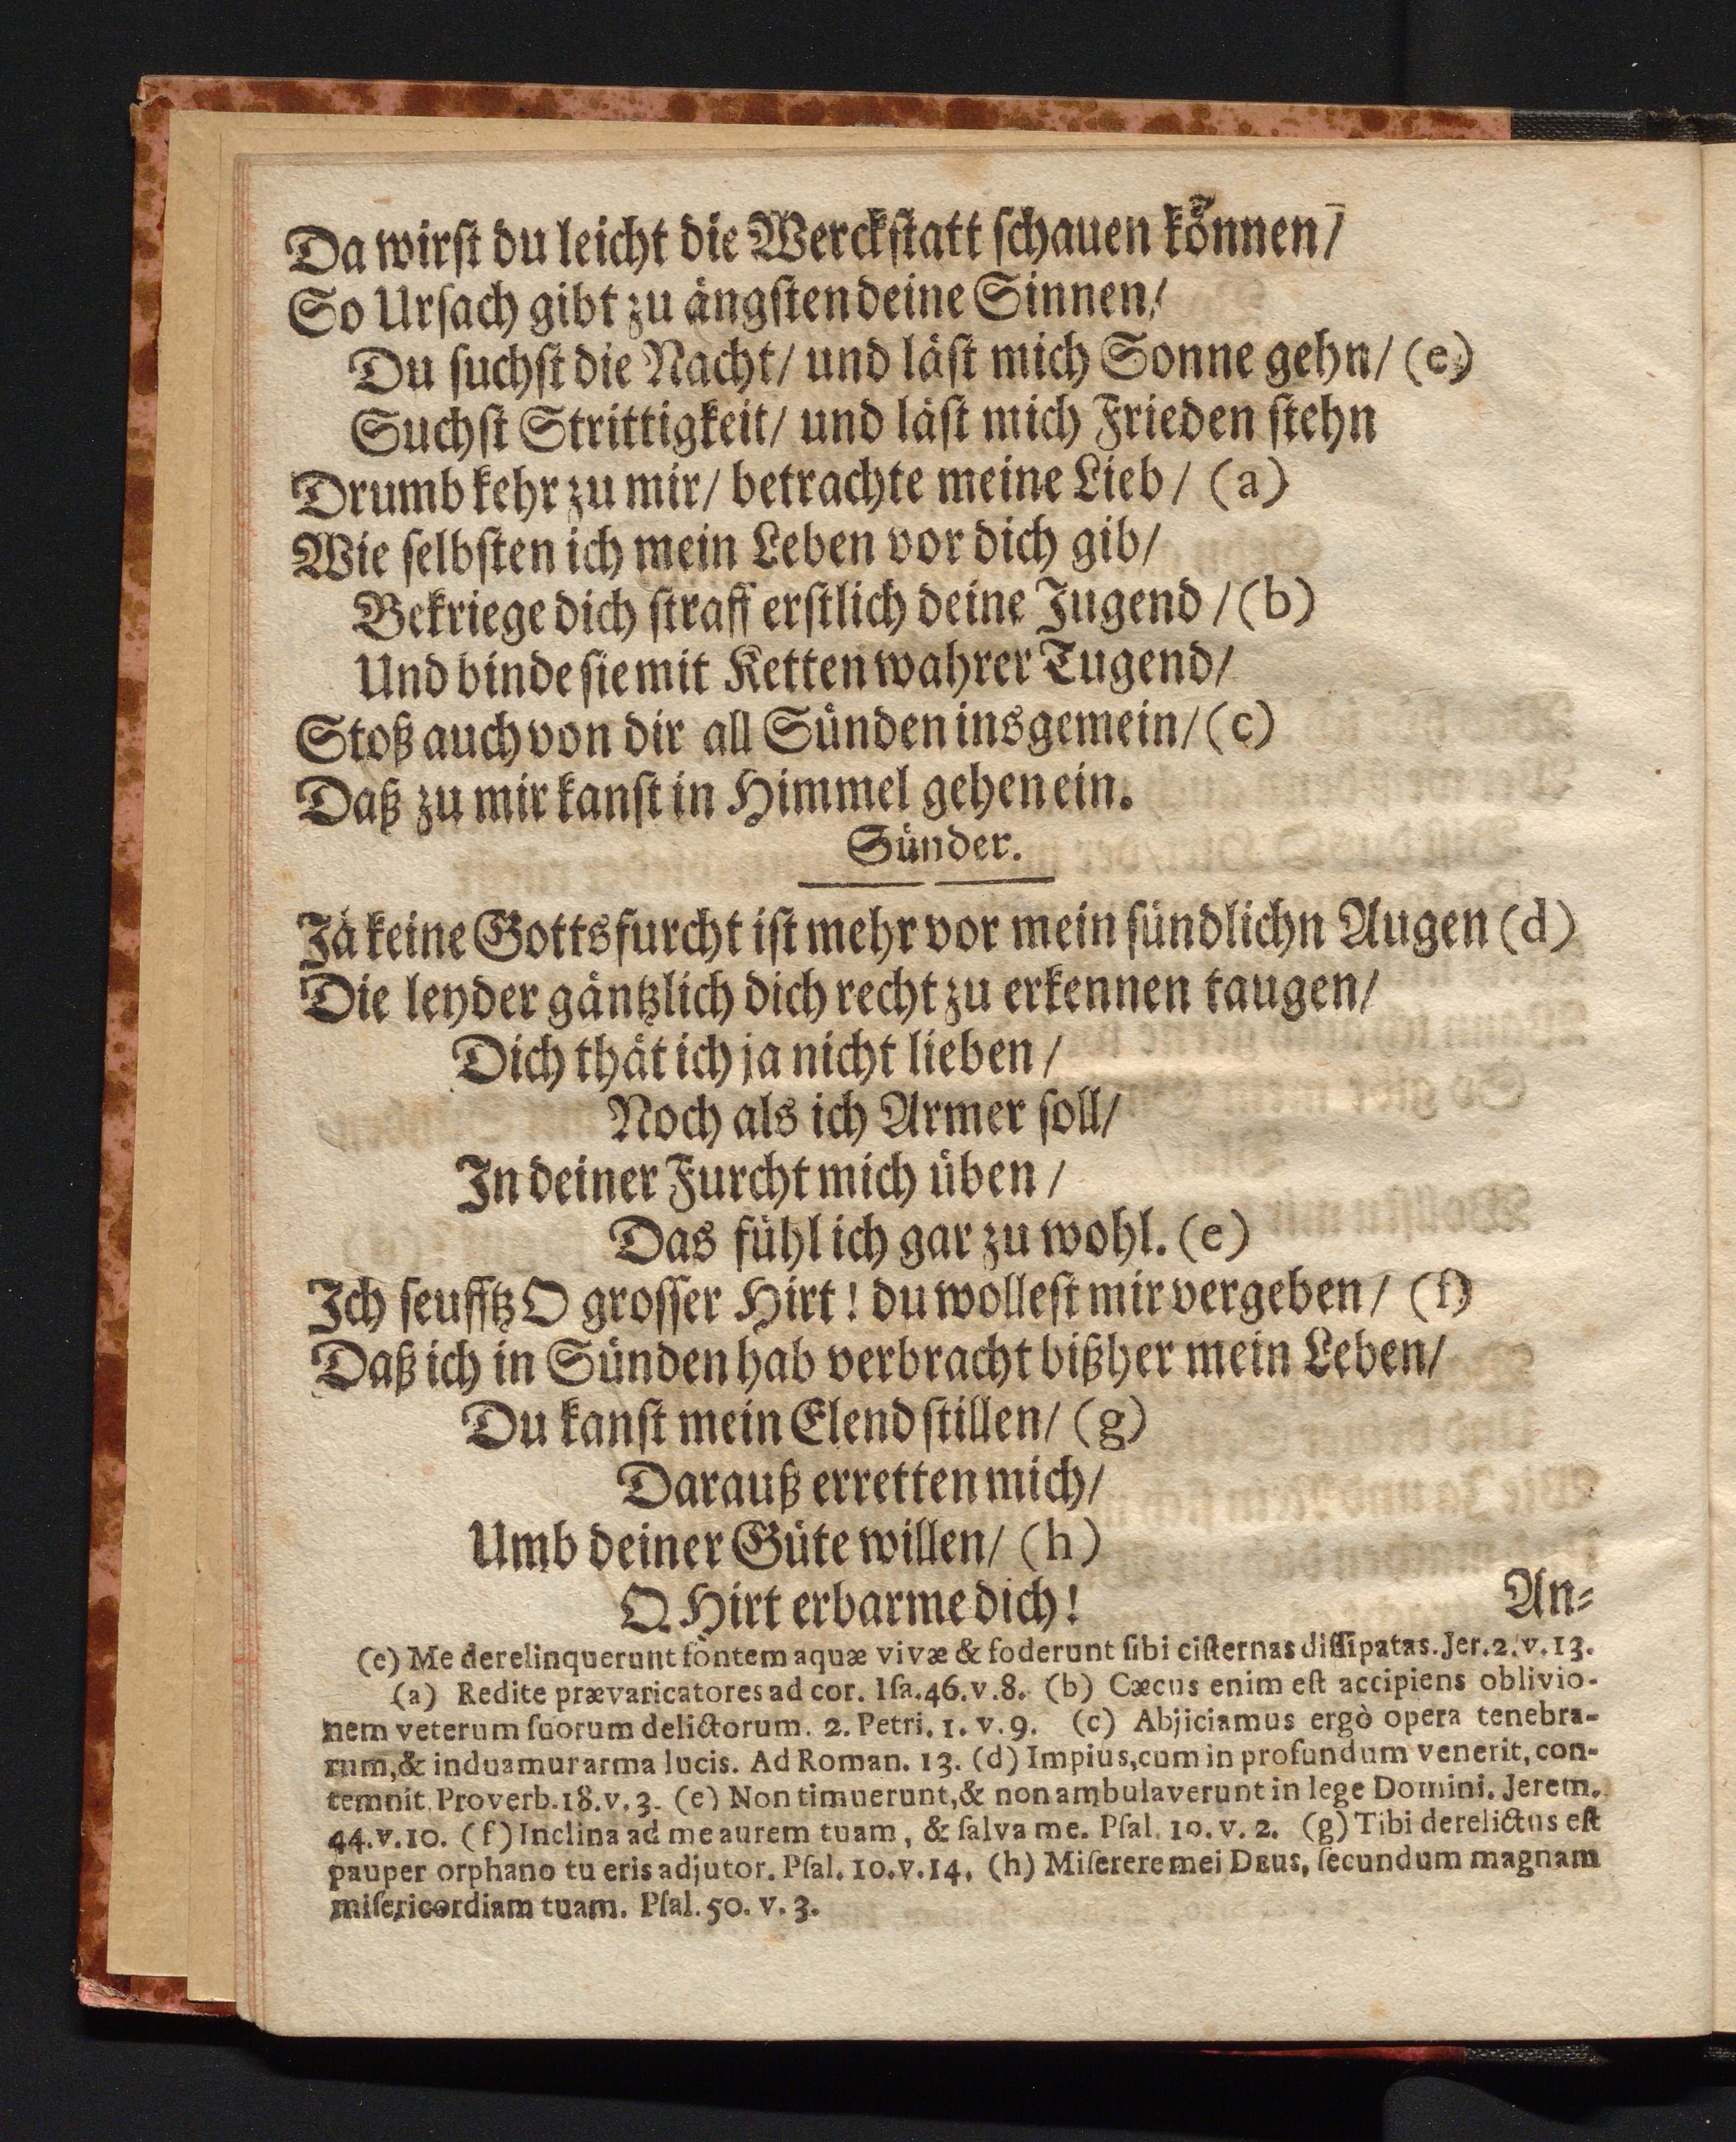 Da wirſt du leicht die Werckſtatt ſchauen können/
So Urſach gibt zu ängſten deine Sinnen/
Du ſuchſt die Nacht/ und läſt mich Sonne gehn/ (e)
Suchſt Strittigkeit/ und läſt mich Frieden ſtehn
Drumb kehr zu mir/ betrachte meine Lieb/ (a)
Wie ſelbſten ich mein Leben vor dich gib/
Bekriege dich ſtraff erſtlich deine Jugend/ (b)
Und binde ſie mit Ketten wahrer Tugend/
Stoß auch von dir all Sünden insgemein/ (c)
Daß zu mir kanſt in Himmel gehen ein.
Sünder.
Ja keine Gottsfurcht iſt mehr vor mein ſündlichn Augen (d)
Die leyder gäntzlich dich recht zu erkennen taugen/
Dich thät ich ja nicht lieben/
Noch als ich Armer ſoll/
In deiner Furcht mich üben/
Das fühl ich gar zu wohl. (e)
Ich ſeufftz O groſſer Hirt! du wolleſt mir vergeben/ (f)
Daß ich in Sünden hab verbracht bißher mein Leben/
Du kanſt mein Elend ſtillen/ (g)
Darauß erretten mich/
Umb deiner Güte willen/ (h)
O Hirt erbarme dich!
An-
(e) Me derelinquerunt fontem aquæ vivæ & foderunt ſibi ciſternas diſſipatas. Jer. 2. v. 13.
(a) Redite prævaricatores ad cor. Iſa. 46. v. 8. (b) Cæcus enim eſt accipiens oblivio-
nem veterum ſuorum delictorum. 2. Petri. 1. v. 9. (c) Abjiciamus ergò opera tenebra-
rum, & induamur arma lucis. Ad Roman. 13. (d) Impius, cum in profundum venerit, con-
temnit. Proverb. 18. v. 3. (e) Non timuerunt, & non ambulaverunt in lege Domini. Jerem.
44. v. 10. (f) Inclina ad me aurem tuam, & ſalva me. Pſal. 10. v. 2. (g) Tibi derelictus eſt
pauper orphano tu eris adjutor. Pſal. 10. v. 14. (h) Miſerere mei DEus, ſecundum magnam
miſericordiam tuam. Pſal. 50. v. 3.